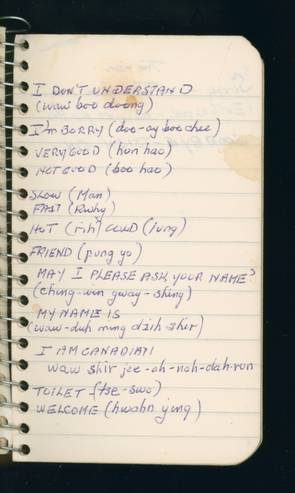 I DON'T UNDERSTAND
(waw boo doong)
I'm SORRY (doo-ay boo chee)
VERY GOOD (hon hao)
NOT GOOD (boo hao)
SLOW (Man)
FAST (Kwhy)
HOT (rih) COLD (lung)
FRIEND (pung yo)
MAY I PLEASE ASK YOUR NAME?
(ching-win gway-shing)
MY NAME IS
(waw-duh ming dzih shir)
I AM CANADIAN
waw shir jee-ah-nah-dah-run
TOILET (tse-swo)
WELCOME (hwahn ying)